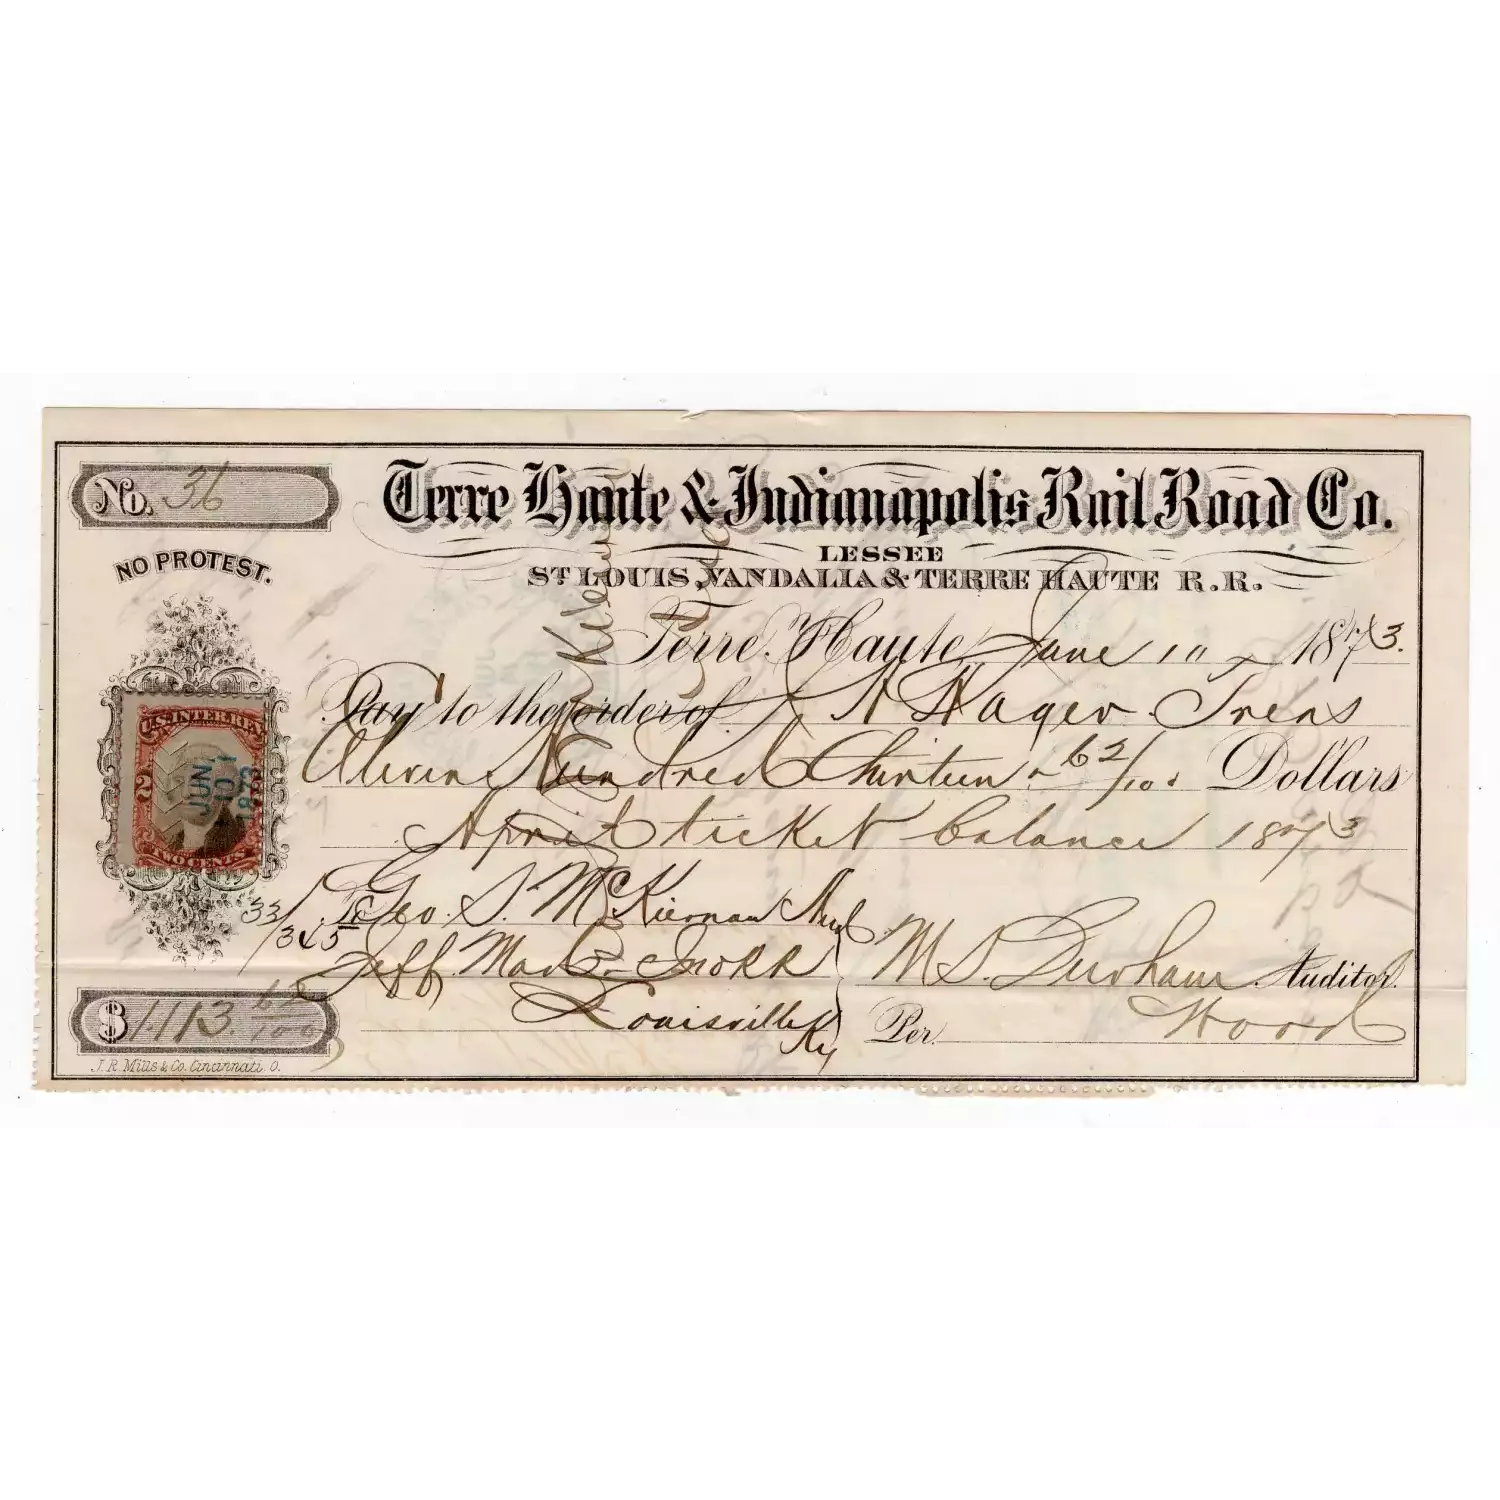 No. 36
Terre Haute & Indianapolis Rail Road Co.
LESSEE
ST LOUIS, VANDALIA & TERRE HAUTE R.R.
NO PROTEST.
Terre Haute June 10 1873.
Pay to the order of J H Hager Treas
Eleven Hundred Thirteen 62/100 Dollars
April ticket balance 1873
U.S. INTER. REV.
2
JUN
10
1873
TWO CENTS
33/345
To Geo. S. McKiernan
Jeff Mad & R R
Louisville Ky
M S. Durham Auditor.
Per Wood
$1113 62/100
J. R. Mills & Co. Cincinnati. O.